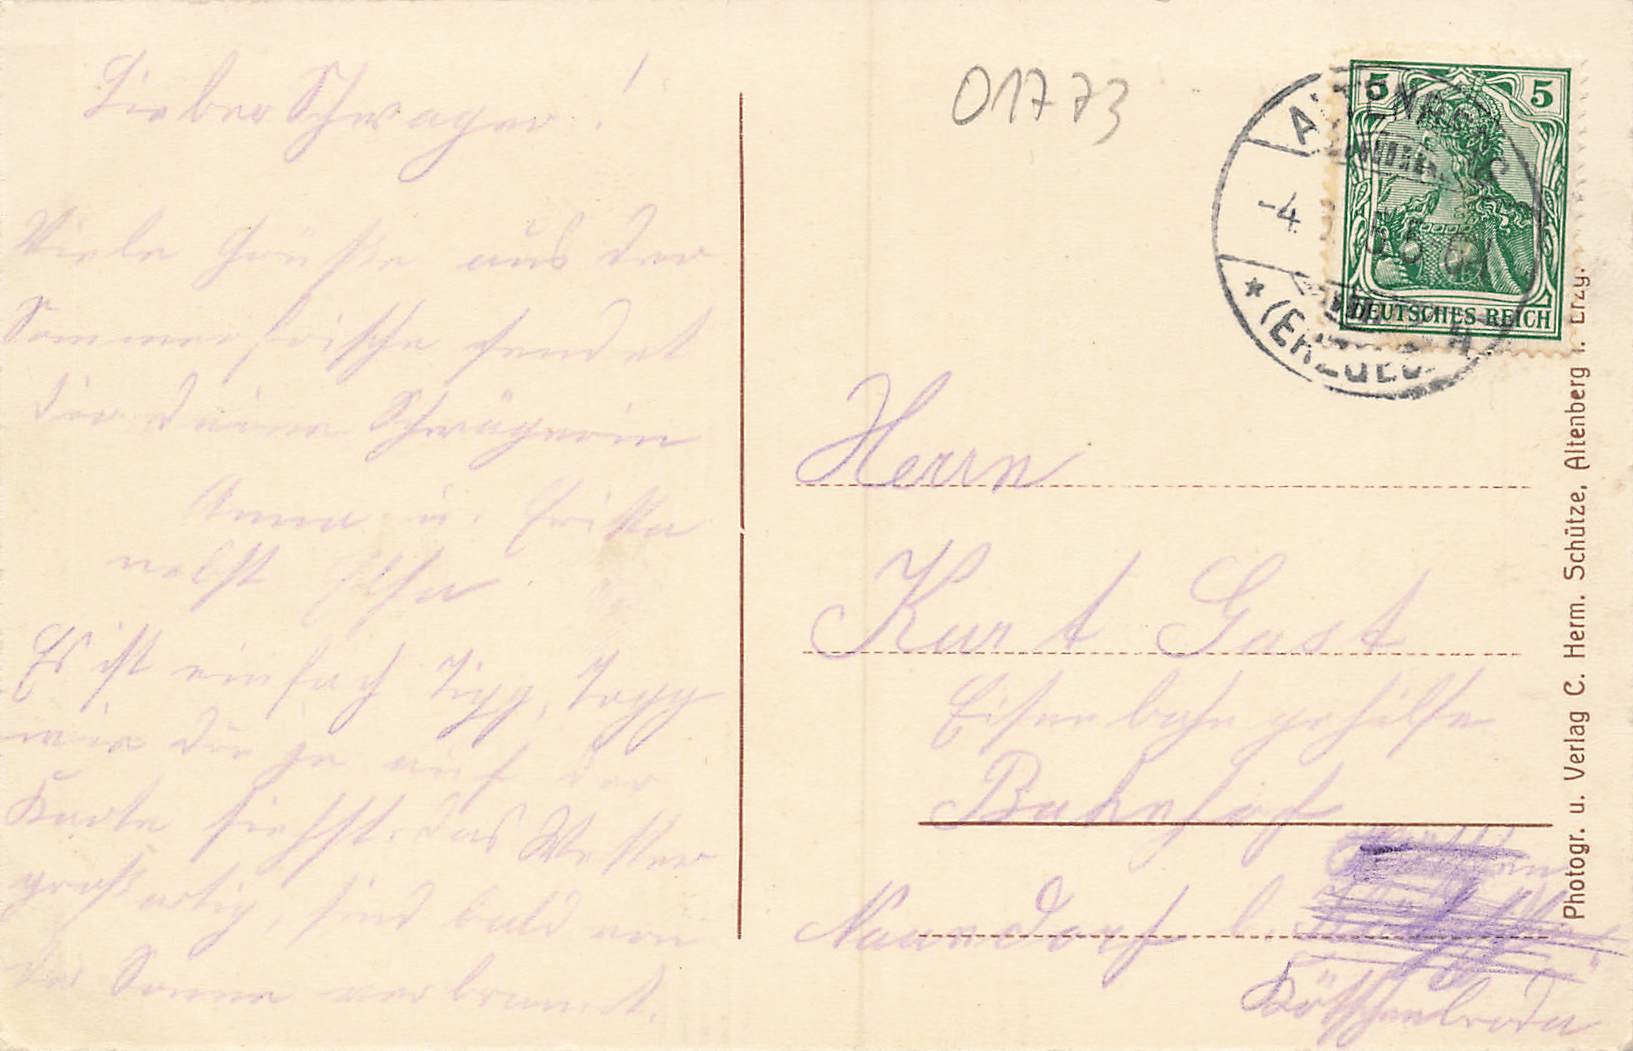 Lieber Schwager!
Viele Grüße aus der
Sommerfrische sendet
dir deine Schwägerin
Anna u. Friska
nebst Elsa
Es ist einfach Tipp, Topp
wie du ja auf der
Karte siehst. das Wetter
großartig, sind bald von
der Sonne verbrannt.
01773
5 5
DEUTSCHES REICH
ALTENBERG
-4
* (ERZGEB.
Herrn
Kurt Gast
Eisenbahngehilfe
Bahnhof
Naundorf b.
Kötzschenbroda
Photogr. u. Verlag C. Herm. Schütze, Altenberg i. Erzg.